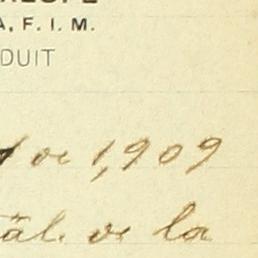 A, F. I. M.
DUIT
de 1,909
tâl. de la